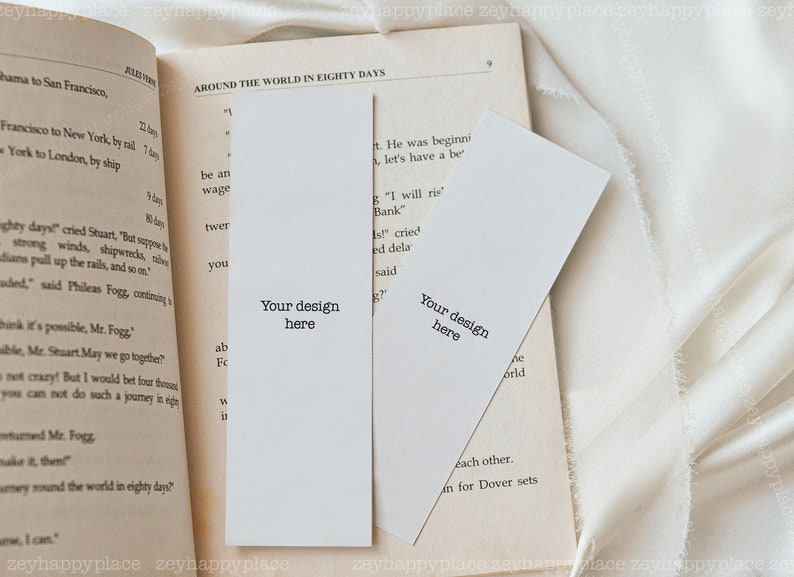 zeyhappyplace zeyhappyplace zeyhappyplace zeyhappyplace zeyhappyplace
JULES VERNE
to San Francisco,
22 days
Francisco to New York, by rail 7 days
York to London, by ship
9 days
80 days
days!" cried Stuart, "But suppose the
strong winds, shipwrecks, railway
pull up the rails, and so on."
said Phileas Fogg, continuing to
think it's possible, Mr. Fogg,"
Mr. Stuart.May we go together?"
not crazy! But I would bet four thousand
you can not do such a journey in eighty
returned Mr. Fogg.
make it, then!"
round the world in eighty days?"
I can."
AROUND THE WORLD IN EIGHTY DAYS 9
He was
be an
let's have a
wage
"I will
Bank"
twen
cried
you
said
ab
Fo
w
in
each other.
for Dover sets
Your design
here
Your design
here
zeyhappyplace zeyhappyplace zeyhappyplace zeyhappyplace zeyhappyplace